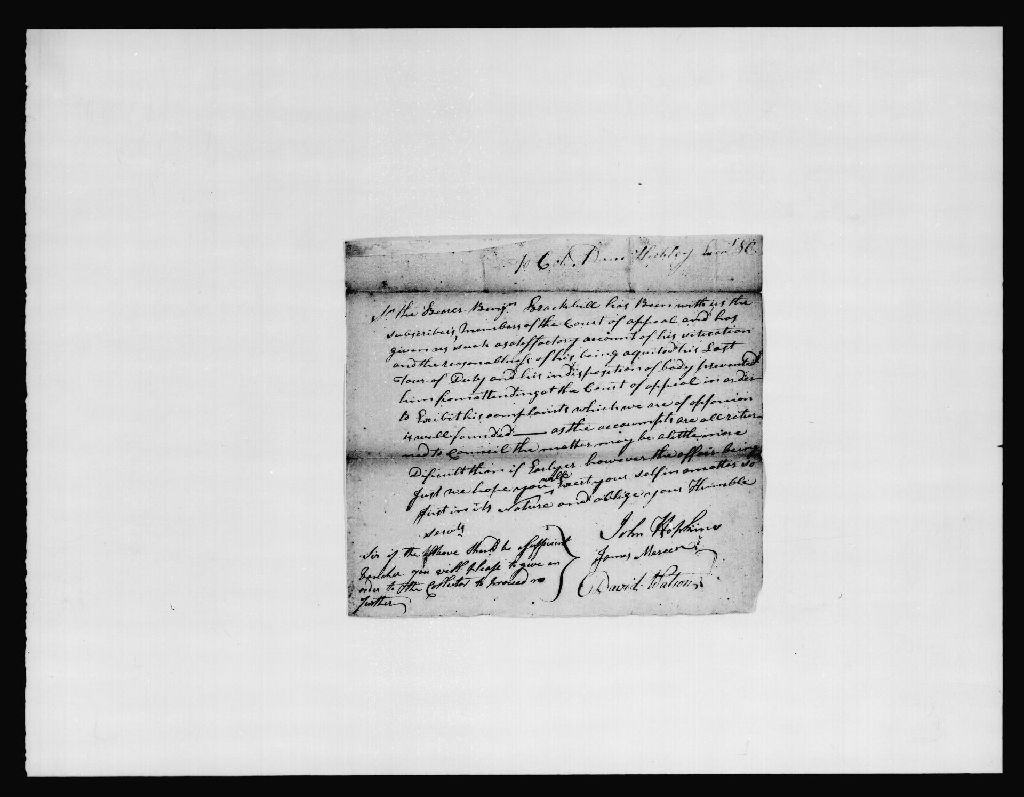 To Col. 
Sir the Bearer Benjn. Brackbill has Been with us the
subscribers, members of the Court of appeal and has
given us such a satisfactory account of his situation
and the reasonablness of his being aquited his Last
Tour of Duty and his indisposition of body prevented
him from attending at the Court of appeal in order
to Exibit his complaints which we are of oppinion
is well founded — as the accompts are all retur-
ned to Council the matter may be a little more
Dificult than if Earlyer however the affair being
Just we hope you will exert your self in a matter so
Just in its Nature and oblige your Humble
servts
John Hopkins
James Mercer
David Watson
Sir if the above should be a sufficient
Voucher you will please to give an
order to the Collector to proceed no
further